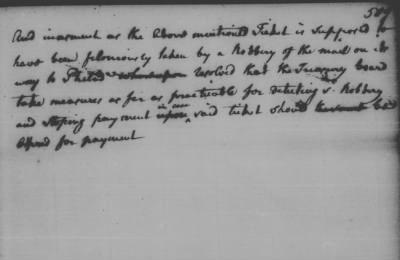 509
And inasmuch as the above mentioned Ticket is supposed to
have been feloniously taken by a Robbery of the mail on its
way to Philada whereupon resolved that the Treasury board
take measures as far as practicable for detecting sd Robbery
and stoping payment upon in case said ticket should be
offered for payment